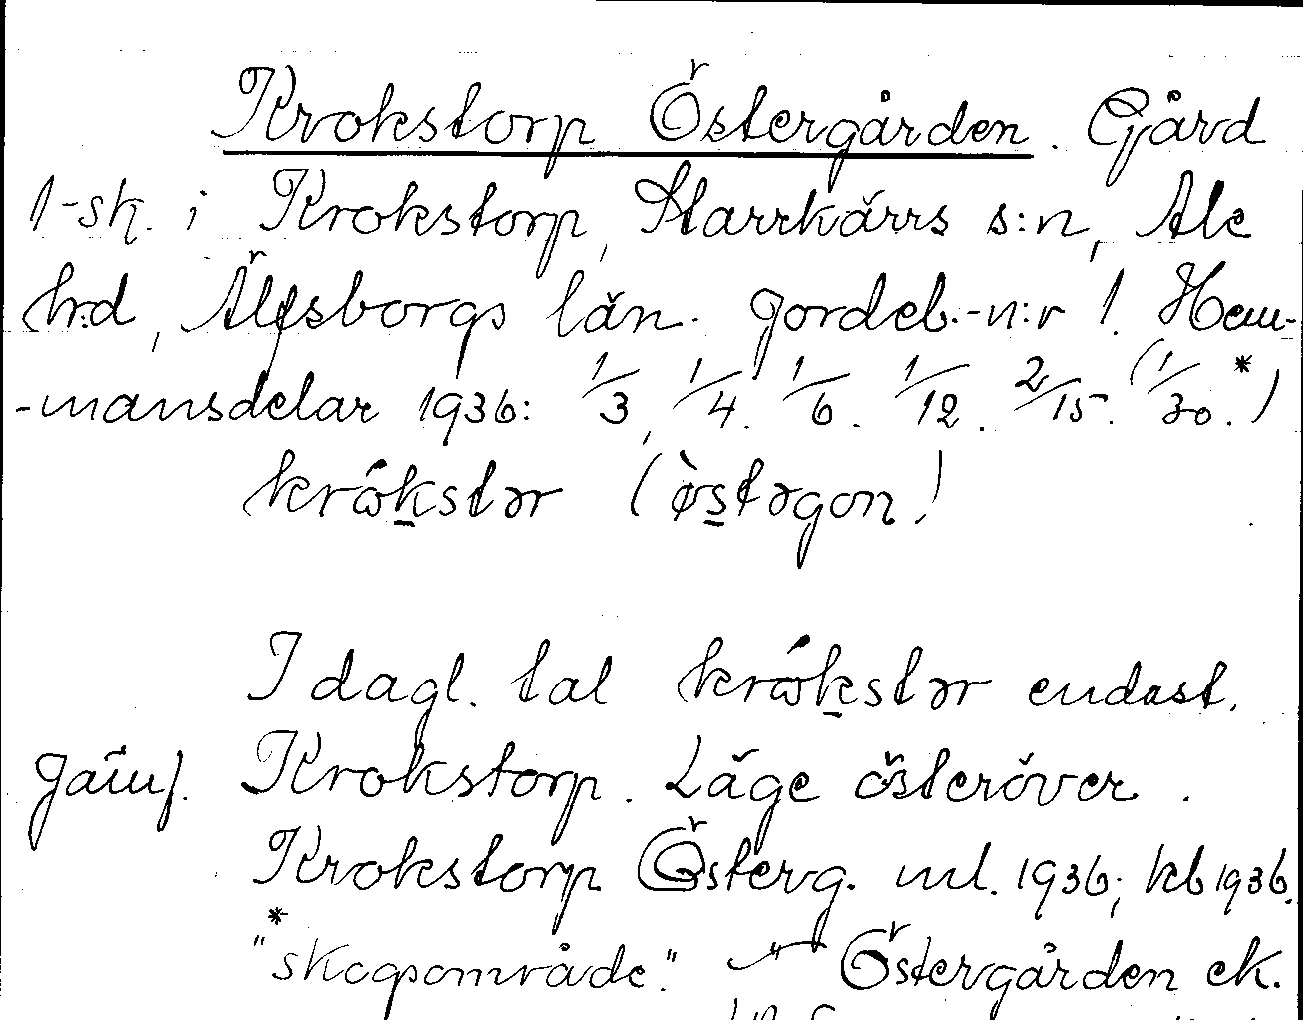 Krokstorp Östergården. Gård
1-sk. i Krokstorp, Starrkärrs s:n, Ale
h:d, Älfsborgs län. Jordeb.-n:r 1. Hem-
-mansdelar 1936: 1/3, 1/4. 1/6. 1/12. 2/15. (1/30.*)
krώk̲stər (ø̀s̲təgon)
I dagl. tal krώk̲stər endast.
Jämf. Krokstorp. Läge österöver.
Krokstorp Österg. ml. 1936; kb 1936.
*
"skogsområde." –"– Östergården ek.